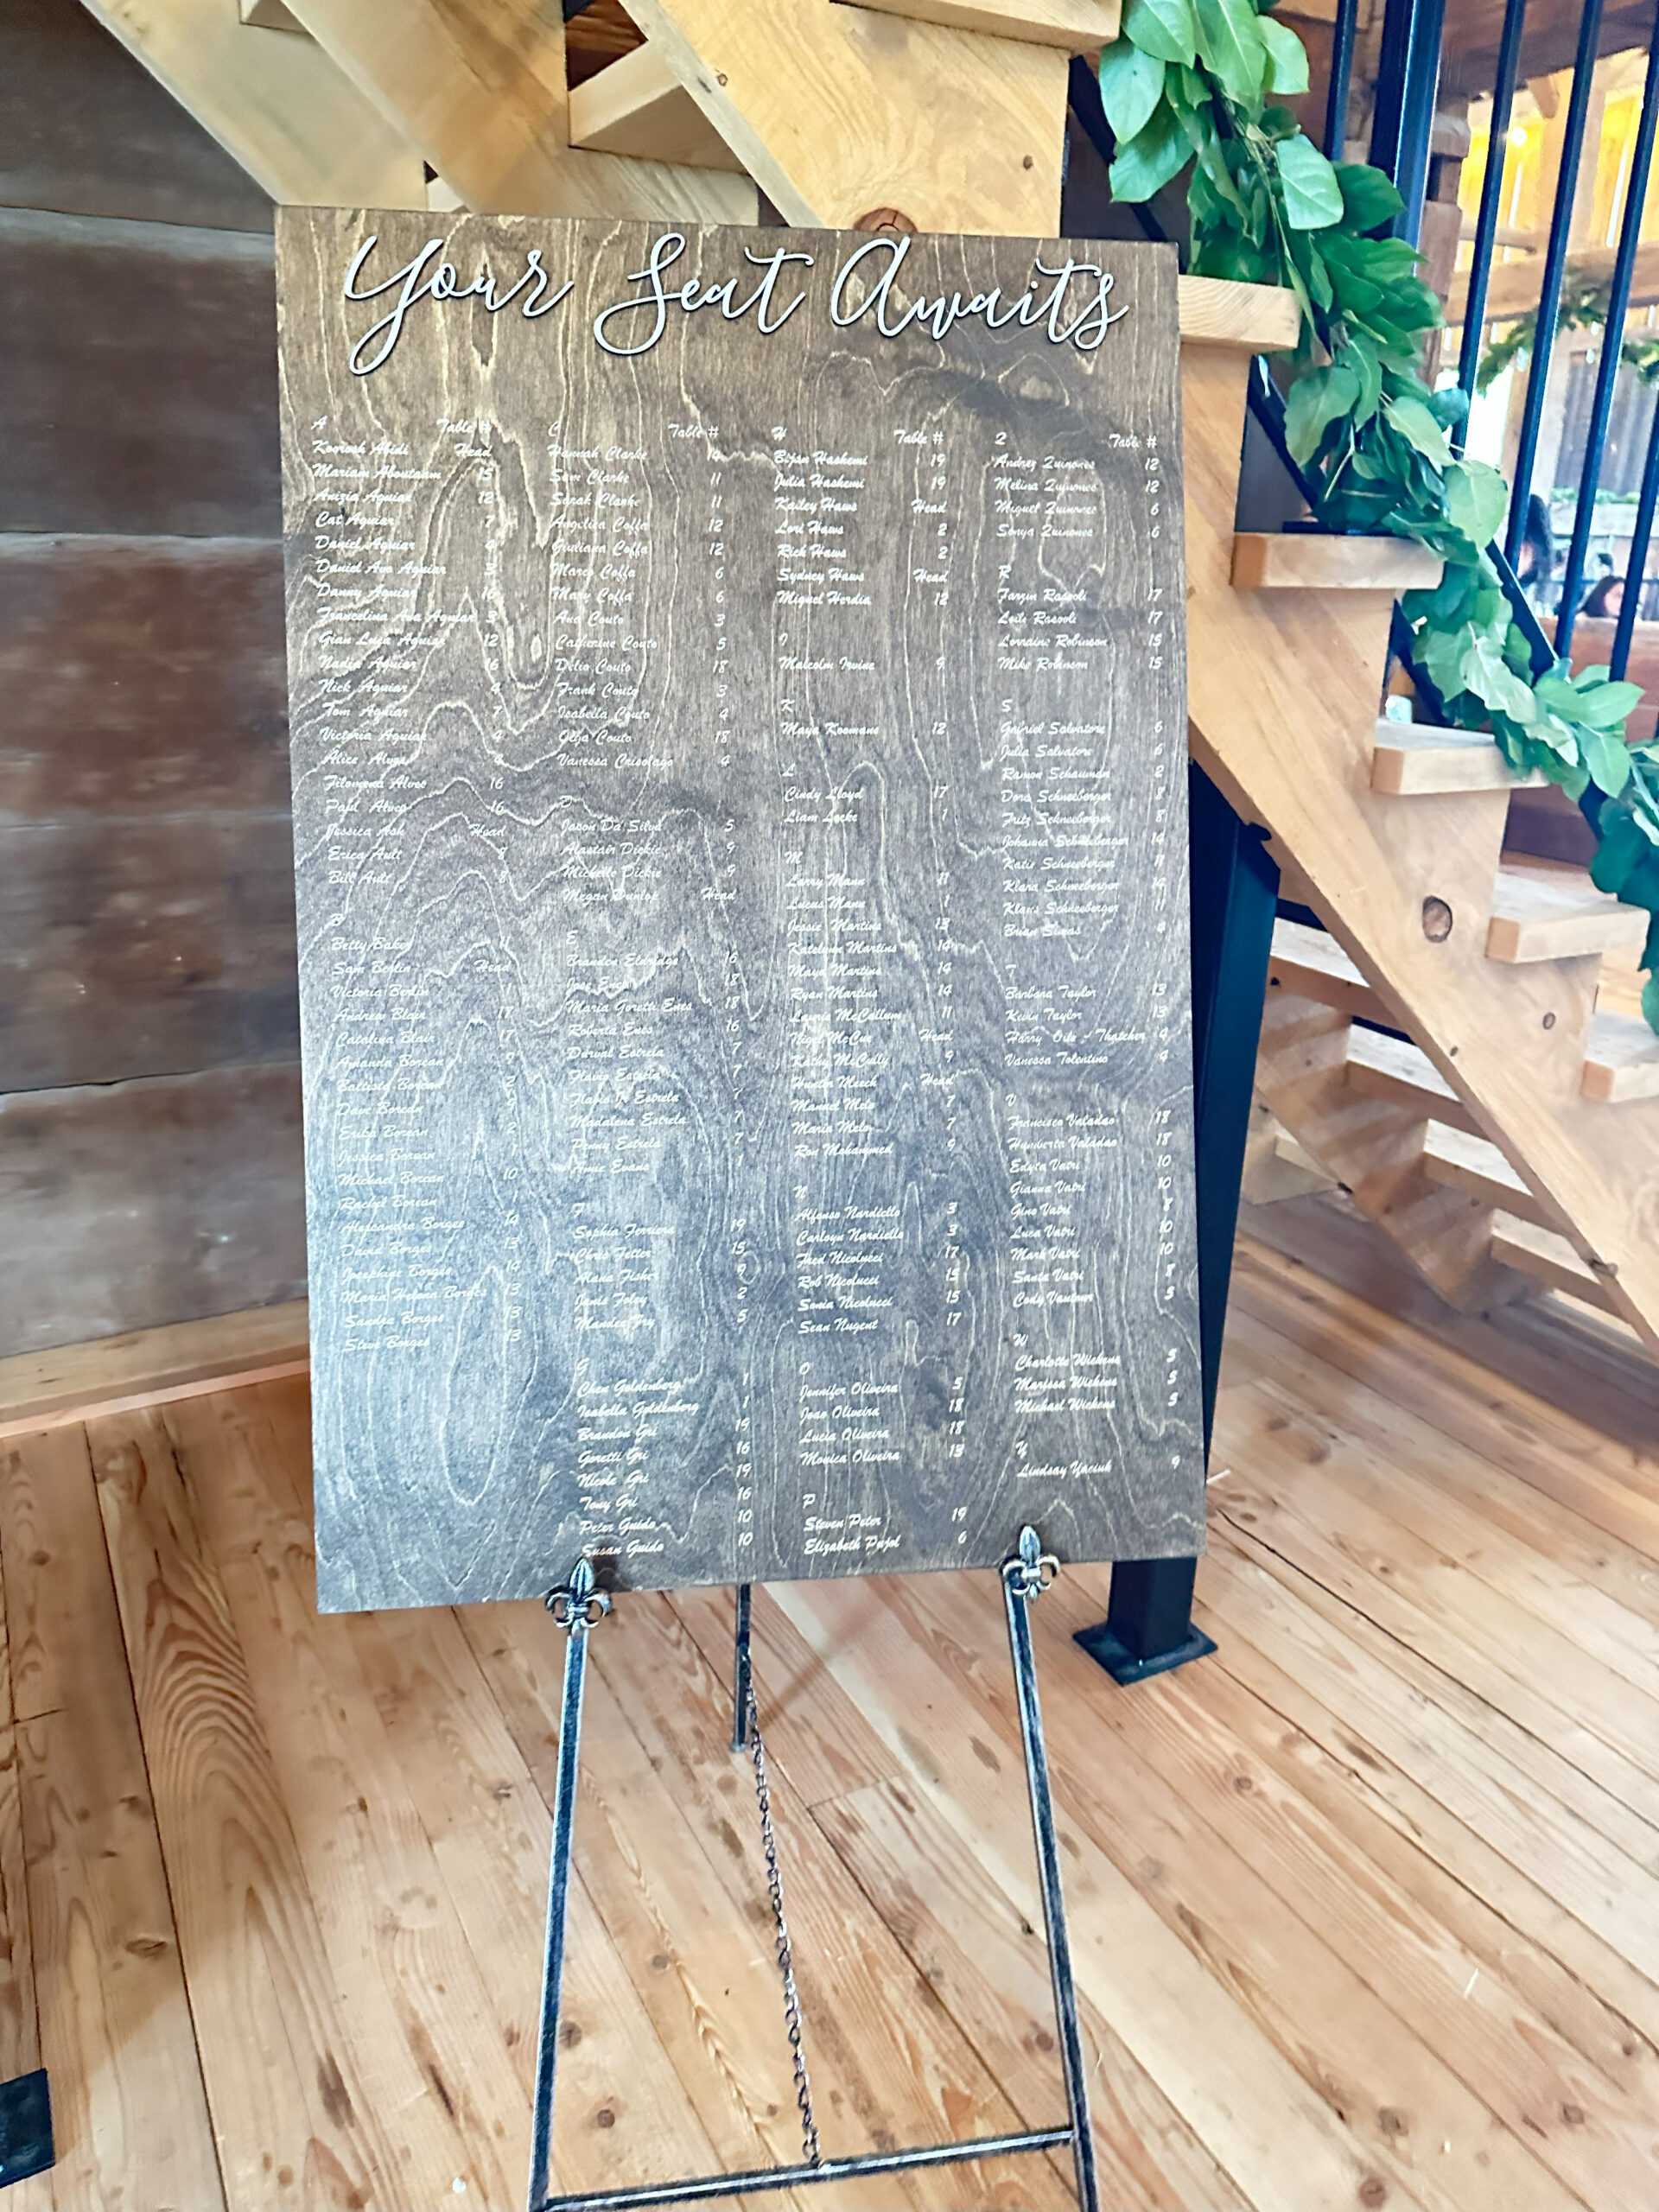 Your Seat Awaits
A Table #
Koorosh Abidi Head
Mariam Aboutaam 15
Anizia Aguiar 12
Cat Aguiar 7
Daniel Aguiar 4
Daniel Avo Aguiar
Danny Aguiar 16
Francelina Ava Aguiar 3
Gian Luca Aguiar 12
Nadia Aguiar 16
Nick Aguiar 4
Tom Aguiar 7
Victoria Aguiar 4
Alice Alves 4
Filomena Alves 16
Paul Alves 16
Jessica Ash Head
Erica Ault 8
Bill Ault 8
B
Betty Baker
Sam Berlin Head
Victoria Berlin
Andrew Blair 17
Catalina Blair 17
Amanda Borean 9
Battista Borean 2
Dave Borean
Erika Borean 2
Jessica Borean 1
Michael Borean 10
Rachel Borean 1
Alessandra Borges 14
David Borges 13
Josephine Borges 14
Maria Helena Borges 13
Sandra Borges 13
Steve Borges 13
C Table #
Hannah Clarke 14
Sam Clarke 11
Sarah Clarke 11
Angelica Coffa 12
Giuliana Coffa 12
Marco Coffa 6
Mary Coffa 6
Ana Couto 3
Catherine Couto 5
Delio Couto 18
Frank Couto 3
Isabella Couto 4
Olga Couto 18
Vanessa Crisolago 4
D
Jason Da Silva 5
Alastair Dickie 9
Michelle Dickie 9
Megan Dunlop Head
E
Branden Eldridge 16
Jose Enes 18
Maria Goretti Enes 18
Roberta Enes 16
Durval Estrela 7
Flavio Estrela 7
Flavia N Estrela 7
Madalena Estrela 7
Penny Estrela 7
Anne Evans 1
F
Sophia Ferriera 19
Chris Fetter 15
Alana Fisher 9
Janis Foley 2
Mandee Fry 5
G
Chen Goldenberg 1
Isabella Goldenberg 1
Brandon Gri 19
Goretti Gri 16
Nicole Gri 19
Tony Gri 16
Peter Guido 10
Susan Guido 10
H Table #
Bijan Hashemi 19
Julia Hashemi 19
Kailey Haws Head
Lori Haws 2
Rick Haws 2
Sydney Haws Head
Miguel Herdia 12
I
Malcolm Irvine 9
K
Maya Koomans 12
L
Cindy Lloyd 17
Liam Locke 1
M
Larry Mann 11
Lucus Mann 1
Jessie Martins 13
Katelynn Martins 14
Maya Martins 14
Ryan Martins 14
Laurie McCallum 11
Nigel McCue Head
Kathy McCully 9
Hunter Meech Head
Manuel Melo 7
Maria Melo 7
Ron Mohammed 9
N
Alfonso Nardiello 3
Carloyn Nardiello 3
Fred Nicolucci 17
Rob Nicolucci 15
Sonia Nicolucci 15
Sean Nugent 17
O
Jennifer Oliveira 5
Joao Oliveira 18
Lucia Oliveira 18
Monica Oliveira 13
P
Steven Peter 19
Elizabeth Pujol 6
Q Table #
Andrez Quinones 12
Melina Quinones 12
Miguel Quinones 6
Sonya Quinones 6
R
Farzin Rasooli 17
Leili Rasooli 17
Lorraine Robinson 15
Mike Robinson 15
S
Gabriel Salvatore 6
Julia Salvatore 6
Ramon Schaumder 2
Dora Schneeberger 8
Fritz Schneeberger 8
Johanna Schneeberger 14
Katie Schneeberger 11
Klara Schneeberger
Klaus Schneeberger 11
Brian Simas 4
T
Barbara Taylor 13
Kevin Taylor 13
Harry Oile - Thatcher 4
Vanessa Tolentino 4
V
Francisco Valadao 18
Humberto Valadao 18
Edyta Vatri 10
Gianna Vatri 10
Gino Vatri 8
Luca Vatri 10
Mark Vatri 10
Santa Vatri 8
Cody Vautour 5
W
Charlotte Wickens 5
Marissa Wickens 5
Michael Wickens 5
Y
Lindsay Yaciuk 9